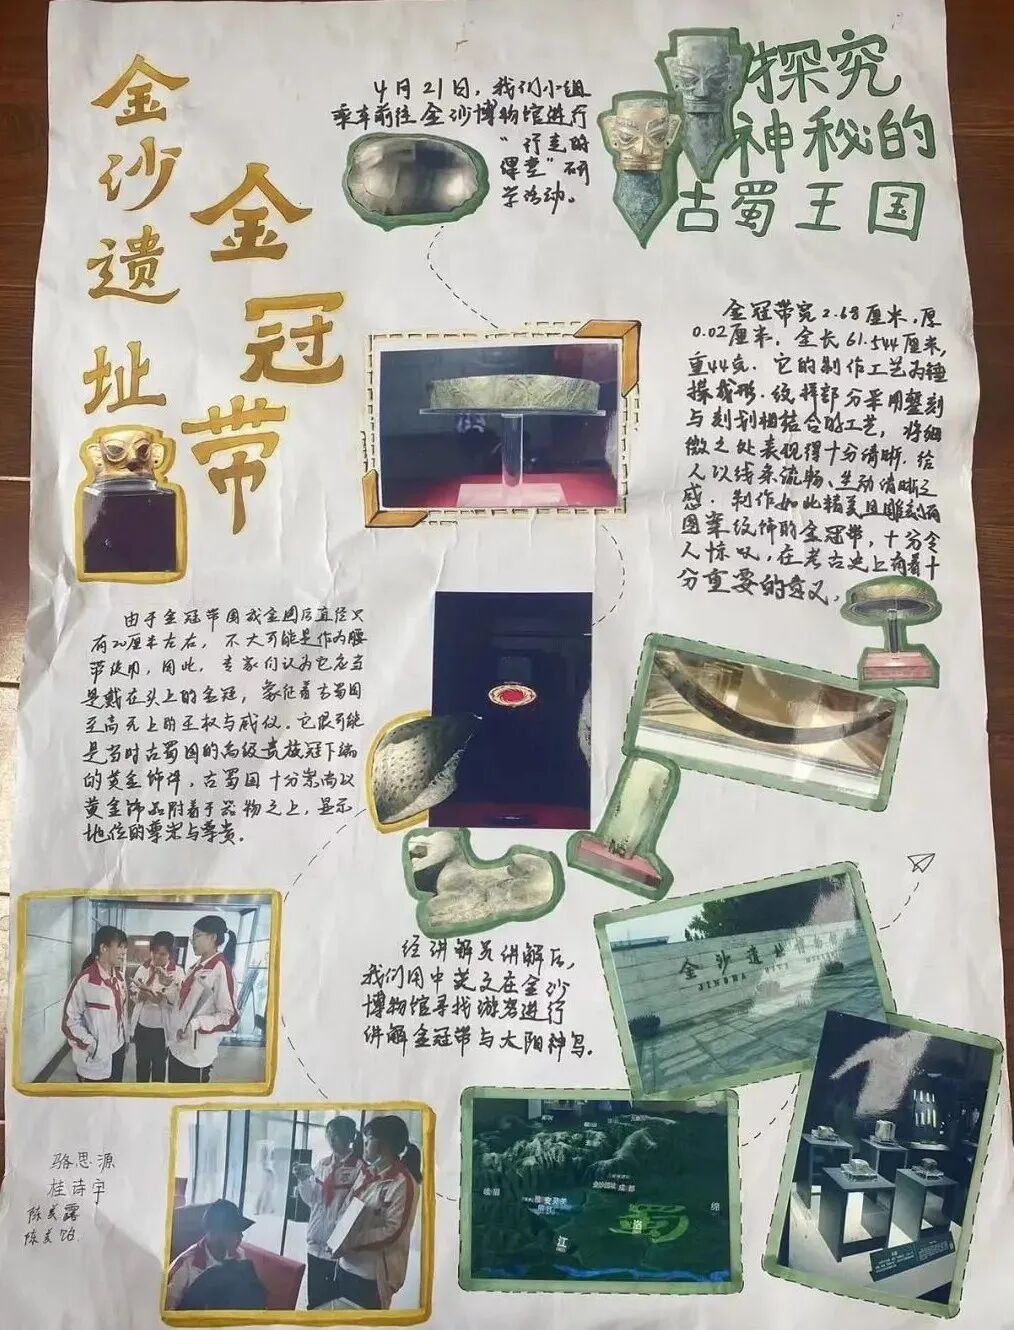 金沙遗址
金冠带
4月21日，我们小组
乘车前往金沙博物馆进行
“行走的
课堂”研
学活动。
探究
神秘的
古蜀王国
金冠带宽2.68厘米，厚
0.02厘米，全长61.544厘米，
重44克．它的制作工艺为锤
揲成形．纹样部分采用錾刻
与刻划相结合的工艺，将细
微之处表现得十分清晰．给
人以线条流畅、生动清晰之
感．制作如此精美且雕刻有
图案纹饰的金冠带，十分令
人惊叹，在考古史上有着十
分重要的意义．
由于金冠带围成金圈后直径只
有20厘米左右，不大可能是作为腰
带使用，因此，专家们认为它应当
是戴在头上的金冠，象征着古蜀国
至高无上的王权与威仪．它很可能
是当时古蜀国的高级贵族冠下端
的黄金饰件，古蜀国十分崇尚以
黄金饰品附着于器物之上，显示
地位的尊崇与尊贵．
经讲解员讲解后，
我们用中英文在金沙
博物馆寻找游客进行
讲解金冠带与太阳神鸟．
金沙遗址博物馆
JINSHA SITE MUSEUM
成都
蜀
江
绵
骆思源
桂诗宇
陈美露